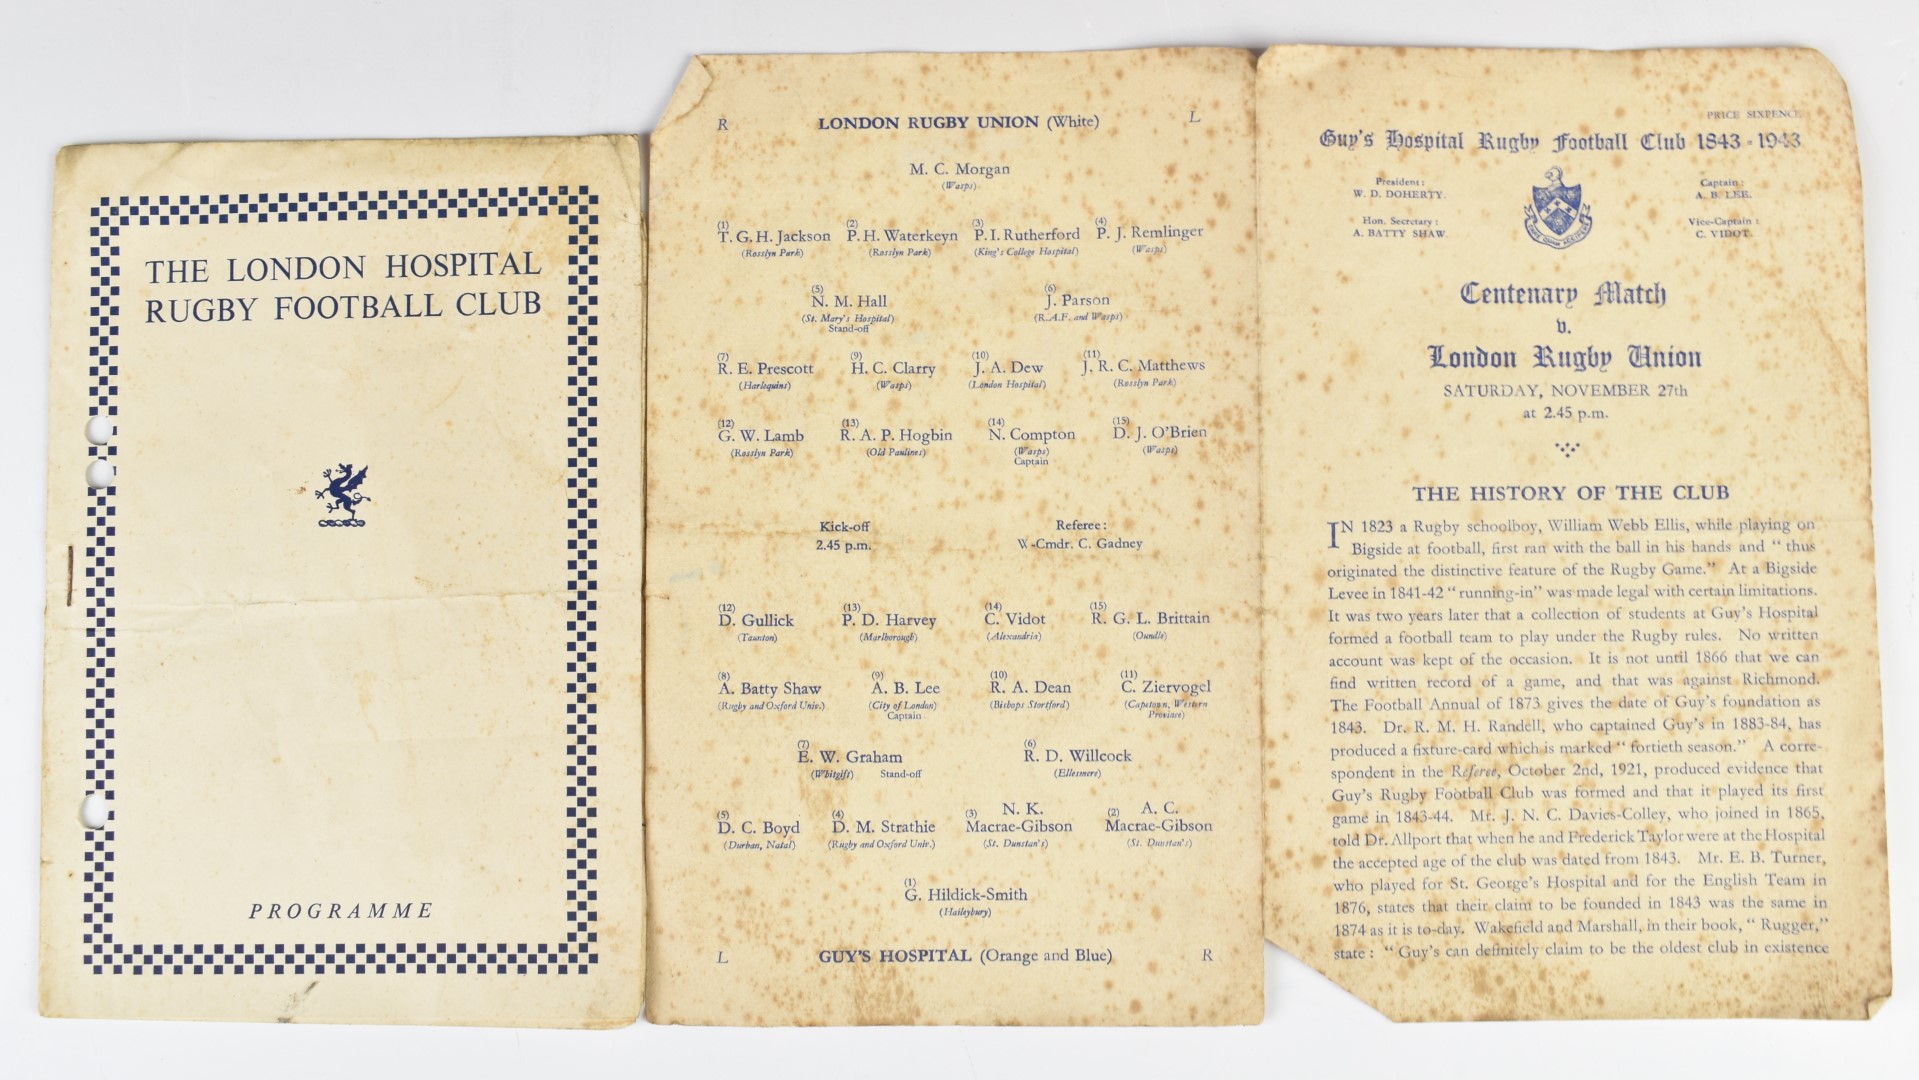 THE LONDON HOSPITAL
RUGBY FOOTBALL CLUB
PROGRAMME
R LONDON RUGBY UNION (White) L
M. C. Morgan
(Wasps)
(1) (2) (3) (4)
T. G. H. Jackson P. H. Waterkeyn P. I. Rutherford P. J. Remlinger
(Rosslyn Park) (Rosslyn Park) (King's College Hospital) (Wasps)
(5) (6)
N. M. Hall J. Parson
(St. Mary's Hospital) (R.A.F. and Wasps)
Stand-off
(7) (9) (10) (11)
R. E. Prescott H. C. Clarry J. A. Dew J. R. C. Matthews
(Harlequins) (Wasps) (London Hospital) (Rosslyn Park)
(12) (13) (14) (15)
G. W. Lamb R. A. P. Hogbin N. Compton D. J. O'Brien
(Rosslyn Park) (Old Paulines) (Wasps) (Wasps)
Captain
Kick-off Referee:
2.45 p.m. W-Cmdr. C. Gadney
(12) (13) (14) (15)
D. Gullick P. D. Harvey C. Vidot R. G. L. Brittain
(Taunton) (Marlborough) (Alexandria) (Oundle)
(8) (9) (10) (11)
A. Batty Shaw A. B. Lee R. A. Dean C. Ziervogel
(Rugby and Oxford Univ.) (City of London) (Bishops Stortford) (Capetown, Western
Captain Province)
(7) (6)
E. W. Graham R. D. Willcock
(Whitgift) Stand-off (Ellesmere)
(5) (4) (3) N. K. (2) A. C.
D. C. Boyd D. M. Strathie Macrae-Gibson Macrae-Gibson
(Durban, Natal) (Rugby and Oxford Univ.) (St. Dunstan's) (St. Dunstan's)
(1)
G. Hildick-Smith
(Haileybury)
L GUY'S HOSPITAL (Orange and Blue) R
PRICE SIXPENCE
Guy's Hospital Rugby Football Club 1843-1943
President: Captain:
W. D. DOHERTY. A. B. LEE.
Hon. Secretary: Vice-Captain:
A. BATTY SHAW. C. VIDOT.
Centenary Match
v.
London Rugby Union
SATURDAY, NOVEMBER 27th
at 2.45 p.m.
THE HISTORY OF THE CLUB
IN 1823 a Rugby schoolboy, William Webb Ellis, while playing on
Bigside at football, first ran with the ball in his hands and "thus
originated the distinctive feature of the Rugby Game." At a Bigside
Levee in 1841-42 "running-in" was made legal with certain limitations.
It was two years later that a collection of students at Guy's Hospital
formed a football team to play under the Rugby rules. No written
account was kept of the occasion. It is not until 1866 that we can
find written record of a game, and that was against Richmond.
The Football Annual of 1873 gives the date of Guy's foundation as
1843. Dr. R. M. H. Randell, who captained Guy's in 1883-84, has
produced a fixture-card which is marked "fortieth season." A corre-
spondent in the Referee, October 2nd, 1921, produced evidence that
Guy's Rugby Football Club was formed and that it played its first
game in 1843-44. Mr. J. N. C. Davies-Colley, who joined in 1865,
told Dr. Allport that when he and Frederick Taylor were at the Hospital
the accepted age of the club was dated from 1843. Mr. E. B. Turner,
who played for St. George's Hospital and for the English Team in
1876, states that their claim to be founded in 1843 was the same in
1874 as it is to-day. Wakefield and Marshall, in their book, "Rugger,"
state: "Guy's can definitely claim to be the oldest club in existence